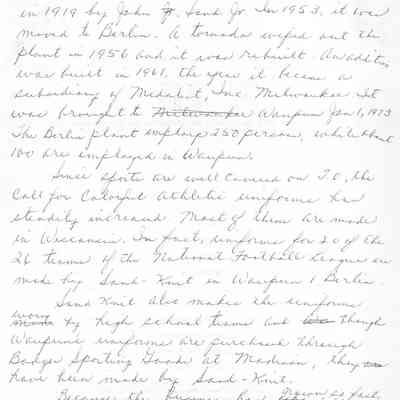 in 1919 by John F. Sand Jr. In 1953, it was
moved to Berlin. A tornado wiped out the
plant in 1956 and it was rebuilt. An addition
was built in 1961, the year it became a
subsidiary of Medalist, Inc. Milwaukee. It
was brought to Milwaukee Waupun Jan 1, 1973
The Berlin plant employs 250 person, while about
100 are employed in Waupun.
Since sports are well carried on T.V., the
call for colorful athletic uniforms has
steadily increased. Most of them are made
in Wisconsin. In fact, uniforms for 20 of the
26 teams of the National Football League are
made by Sand-Knit in Waupun / Berlin.
Sand Knit also makes the uniforms
worn by high school teams and though
Waupun's uniforms are purchased through
Badger Sporting Goods at Madison, they
have been made by Sand-Knit.
Because the business has grown so fast,